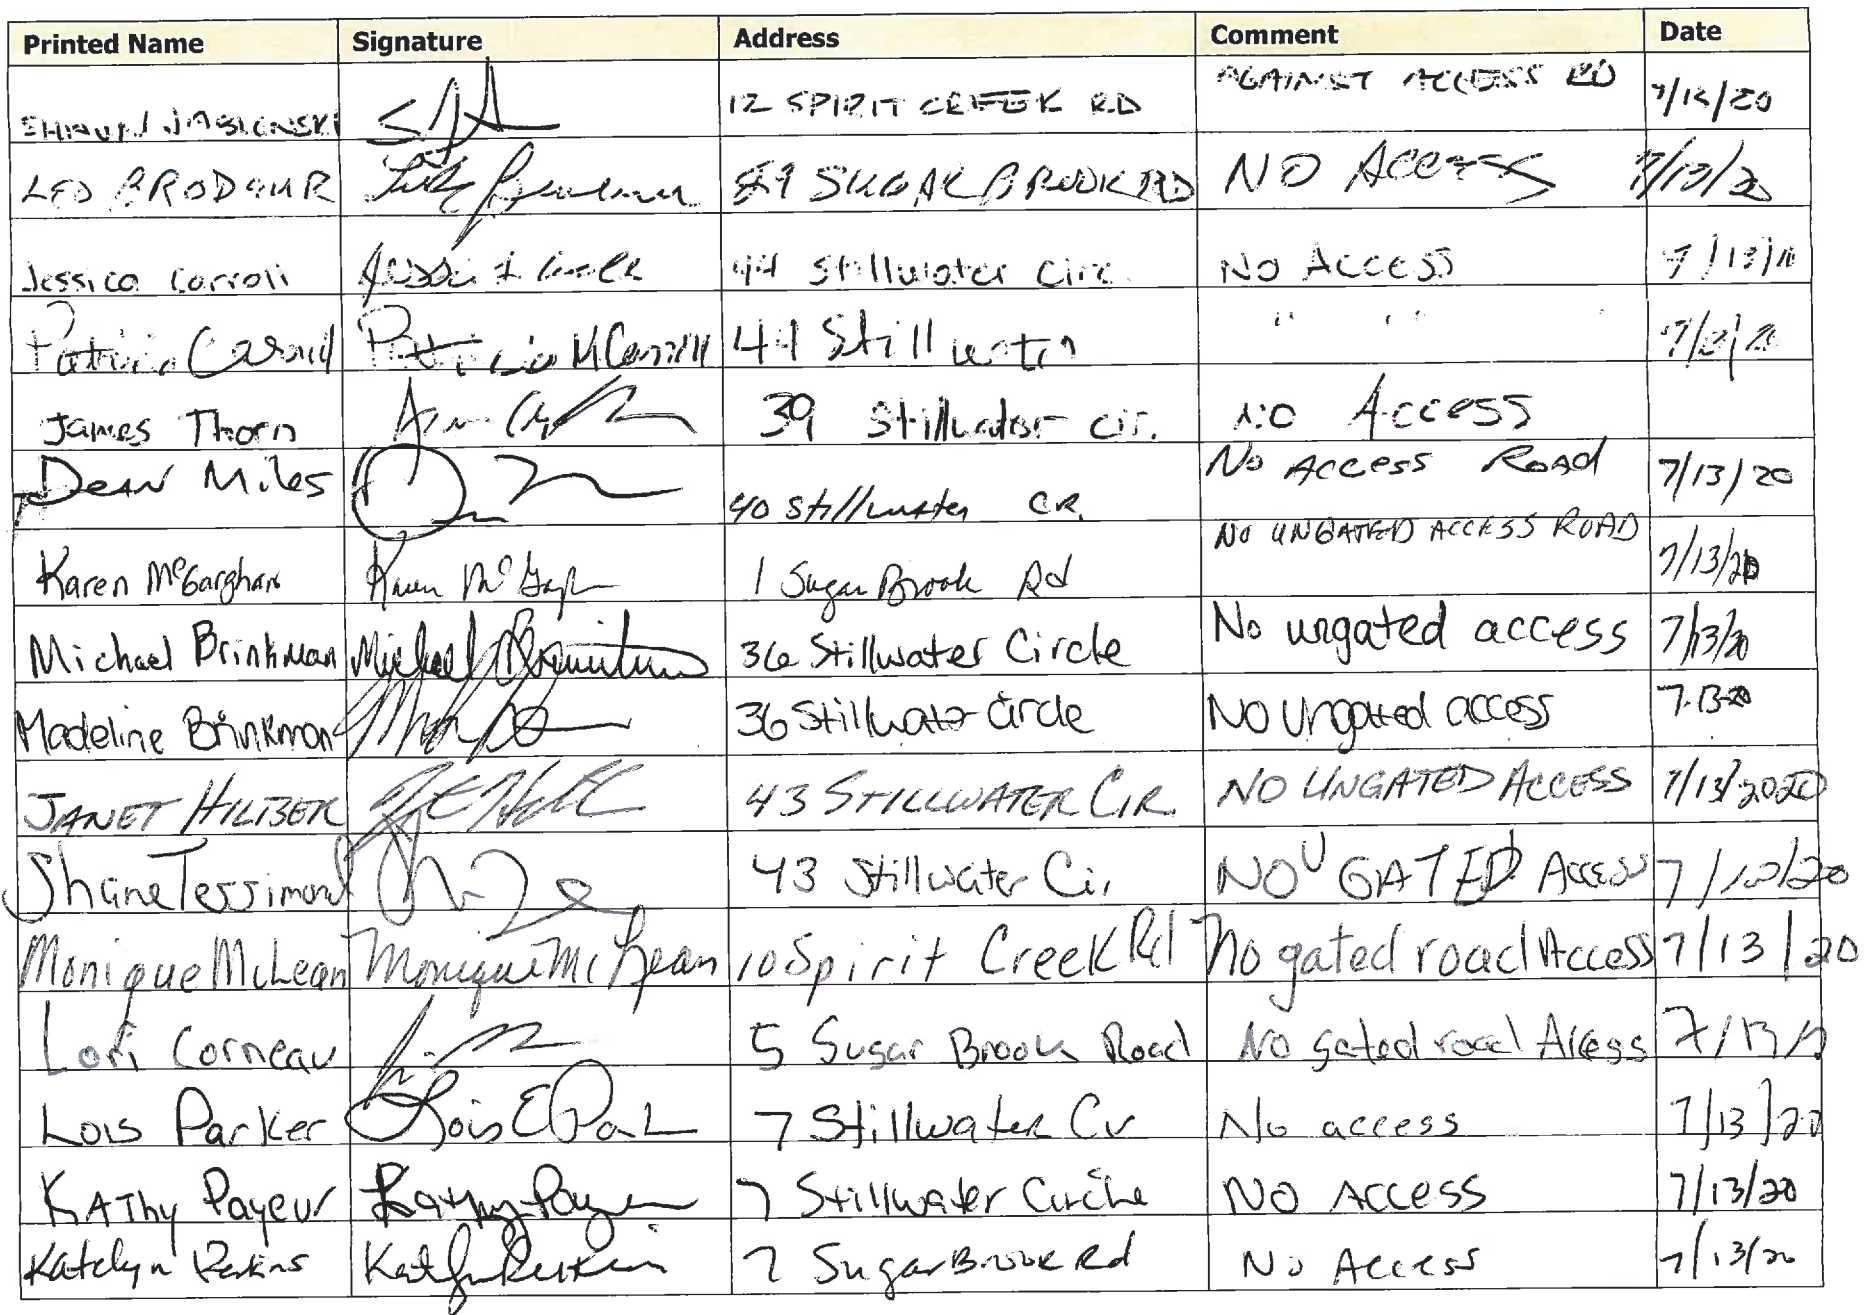 Printed Name Signature Address Comment Date
SHAUN JABLONSKI 12 SPIRIT CREEK RD AGAINST ACCESS RD 7/13/20
LEO BRODEUR 29 SUGAR BROOK RD NO ACCESS 7/13/20
Jessica Carroll 44 Stillwater Circ. NO ACCESS 7/13/20
Patricia Carroll Patricia M Carroll 44 Stillwater " " " 7/13/20
James Thorn 39 Stillwater cir. NO Access
Dean Miles 40 Stillwater CR. No Access Road 7/13/20
Karen McGarghan 1 Sugar Brook Rd NO UNGATED ACCESS ROAD 7/13/20
Michael Brinkman Michael Brinkman 36 Stillwater Circle No ungated access 7/13/20
Madeline Brinkman 36 Stillwater Circle NO Ungated access 7.13.20
JANET HILTBEK 43 STILLWATER CIR. NO UNGATED ACCESS 7/13/2020
Shane Tessimond 43 Stillwater Cir, NO U GATED Access 7/13/20
Monique McLean Monique McLean 10 Spirit Creek Rd No gated road Access 7/13/20
Lori Corneau 5 Sugar Brook Road No gated road Access 7/13/
Lois Parker Lois E Pa 7 Stillwater Cir No access 7/13/20
KAThy Payeur Kathy Payeur 7 Stillwater Circle NO ACCESS 7/13/20
Katelyn Perkins Katelyn Perkins 7 Sugar Brook Rd No Access 7/13/20